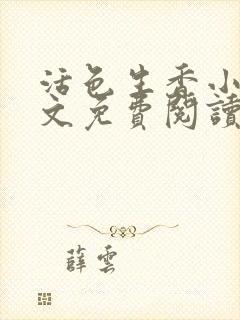 活色生香小
文免費閱讀
薛雲